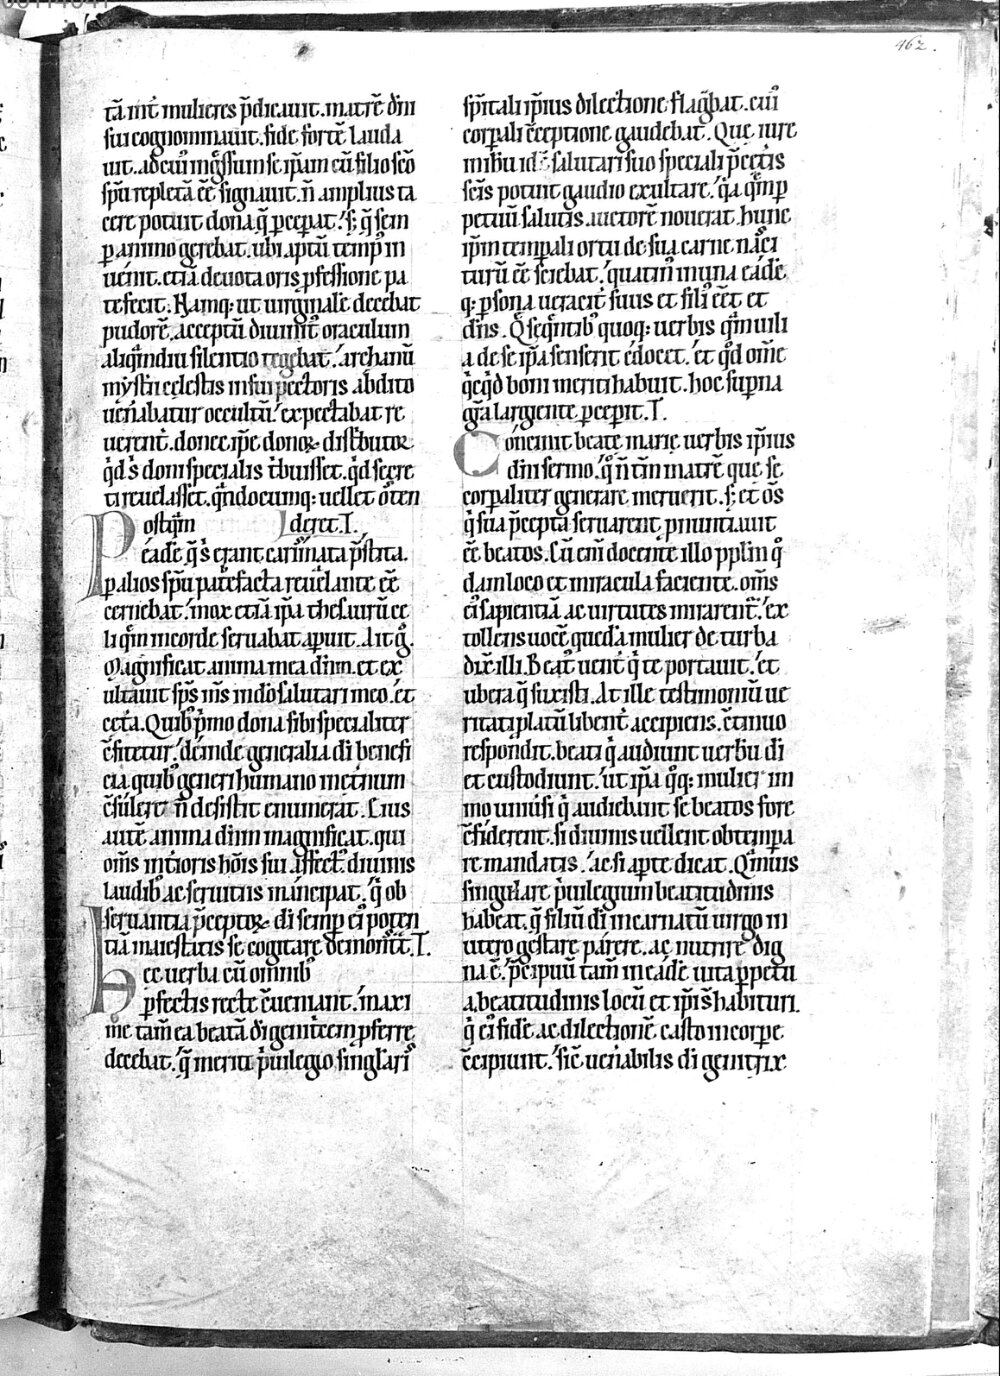 462.
tā int̄ mulieres p̄dicauit. matrē dn̄i
sui cognominauit. fide fortē lauda
uit. ad cui᷒ ingͣssum se ip̄am cū filio scō
sp̄u repletā eē signauit. n̄ amplius ta
cere potuit dona q̄ p̱cep̱at. s; q̄ sem
p̱ animo gerebat. ubi aptū temp᷒ in
uēint. etiā deuota oris p̱fessione pa
tefecit. Namq; ut uirginalē decebat
pudorē. acceptū diuinit᷒ oraculum
aliqͣmdiu silentio tegebat. archanū
mysterii celestis in sui pectoris abdito
uen̄abatur occultū. expectabat re
uerent̄. donec ip̄e donoꝝ distributor
qd̄ s̄ doni specialis t̄buisset. qd̄ secre
ti reuelasset. qͣndocumq; uellet os̄ten
deret. T.
Postqͣm
eādē. q̄ s̄ erant carnī nata p̄stita.
p̱ alios sp̄u patefacta reuelante eē
cernebat. mox etiā ip̄a thesaurū ce
li qͤm in corde seruabat ap̱uit. Ait g̊.
Magnificat anima mea dn̄m. et ex
ultauit sp̄s m̄s in dō salutari meo. et
cet̄a. Quib᷒ p̄mo dona sibi specialiter
cōfitetur. deinde generalia dī benefi
cia quib᷒ generi humano inet̄num
cōsulere n̄ desistit enumerat. Eius
autē anima dn̄m magnificat. qui
om̄s int̄ioris hoīs sui affect᷒ diuinis
laudib᷒ ac seruitiis mancipat. q̄ ob
seruantia p̄ceptoꝝ dī semp̱ ei᷒ poten
tiā maiestatis se cogitare demonst̄t. T.
Hec uerba cū omnib᷒
p̱fectis recte cōueniant. maxi
me tam̄ ea beatā dī genit̄cem p̱ferre
decebat. q̄ meriti p̄uilegio singlaris
sp̄itali ip̄ius dilectione flagͣbat. cui᷒
corp̱ali cōceptione gaudebat. Que iure
in ih̄u id ē salutari suo speciali p̄ cet̄is
scīs potuit gaudio exultare. qͥa qͤm p̱
petuū salutis auctorē nouerat. hunc
ip̄m temp̱ali ortu de sua carne nasci
turū eē sciebat. quatin᷒ in una eadē
q; p̱sona ueracit̄ suus et fili᷒ eēt et
dn̄s. Q̄ seqͤntib᷒ quoq; uerbis qͣm uili
a de se ip̄a senserit edocet. et qd̄ om̄e
qͥcqͥd boni meriti habuit. hoc sup̱na
gr̄a largiente p̱cep̱it. T.
Conciniit beate marie uerbis ip̄ius
dn̄i sermo. qͦ n̄ tm̄ matrē que se
corp̱aliter generare meruerit. s; et os̄
qͥ sua p̄cepta seruarent. p̱nuntiauit
eē beatos. Cū eni᷒ docente illo pp̄lm qͦ
dam loco et miracula faciente. om̄s
ei᷒ sapientiā ac uirtutes mirarent᷑. ex
tollens uocē quedā mulier de turba
dix̄ illi. Beat᷒ uent̄ qͥ te portauit. et
ubera q̄ suxisti. At ille testimoniū ue
ritati platū libent̄ accipiens. cōtinuo
respondit. beati qͥ audiunt uerbū dī
et custodiunt. ut ip̄a qͦq; mulier im
mo uniusi qͥ audiebant se beatos fore
cōfiderent. si diuinis uellent obtemp̱a
re mandatis. ac si ap̱te dicat. Qͣmuis
singulare p̄uilegium beatitudinis
habeat. q̄ filiū dī incarnatū uirgo in
utero gestare. parere. ac nutrire dig
na ē. p̄cipuū tam̄ in eādē uita p̱petu
a beatitudinis locū et ip̄i s̄ habituri.
qͥ ei᷒ fidē ac dilectionē casto in corpe
cōcipiunt. Sic uen̄abilis dī genitrix